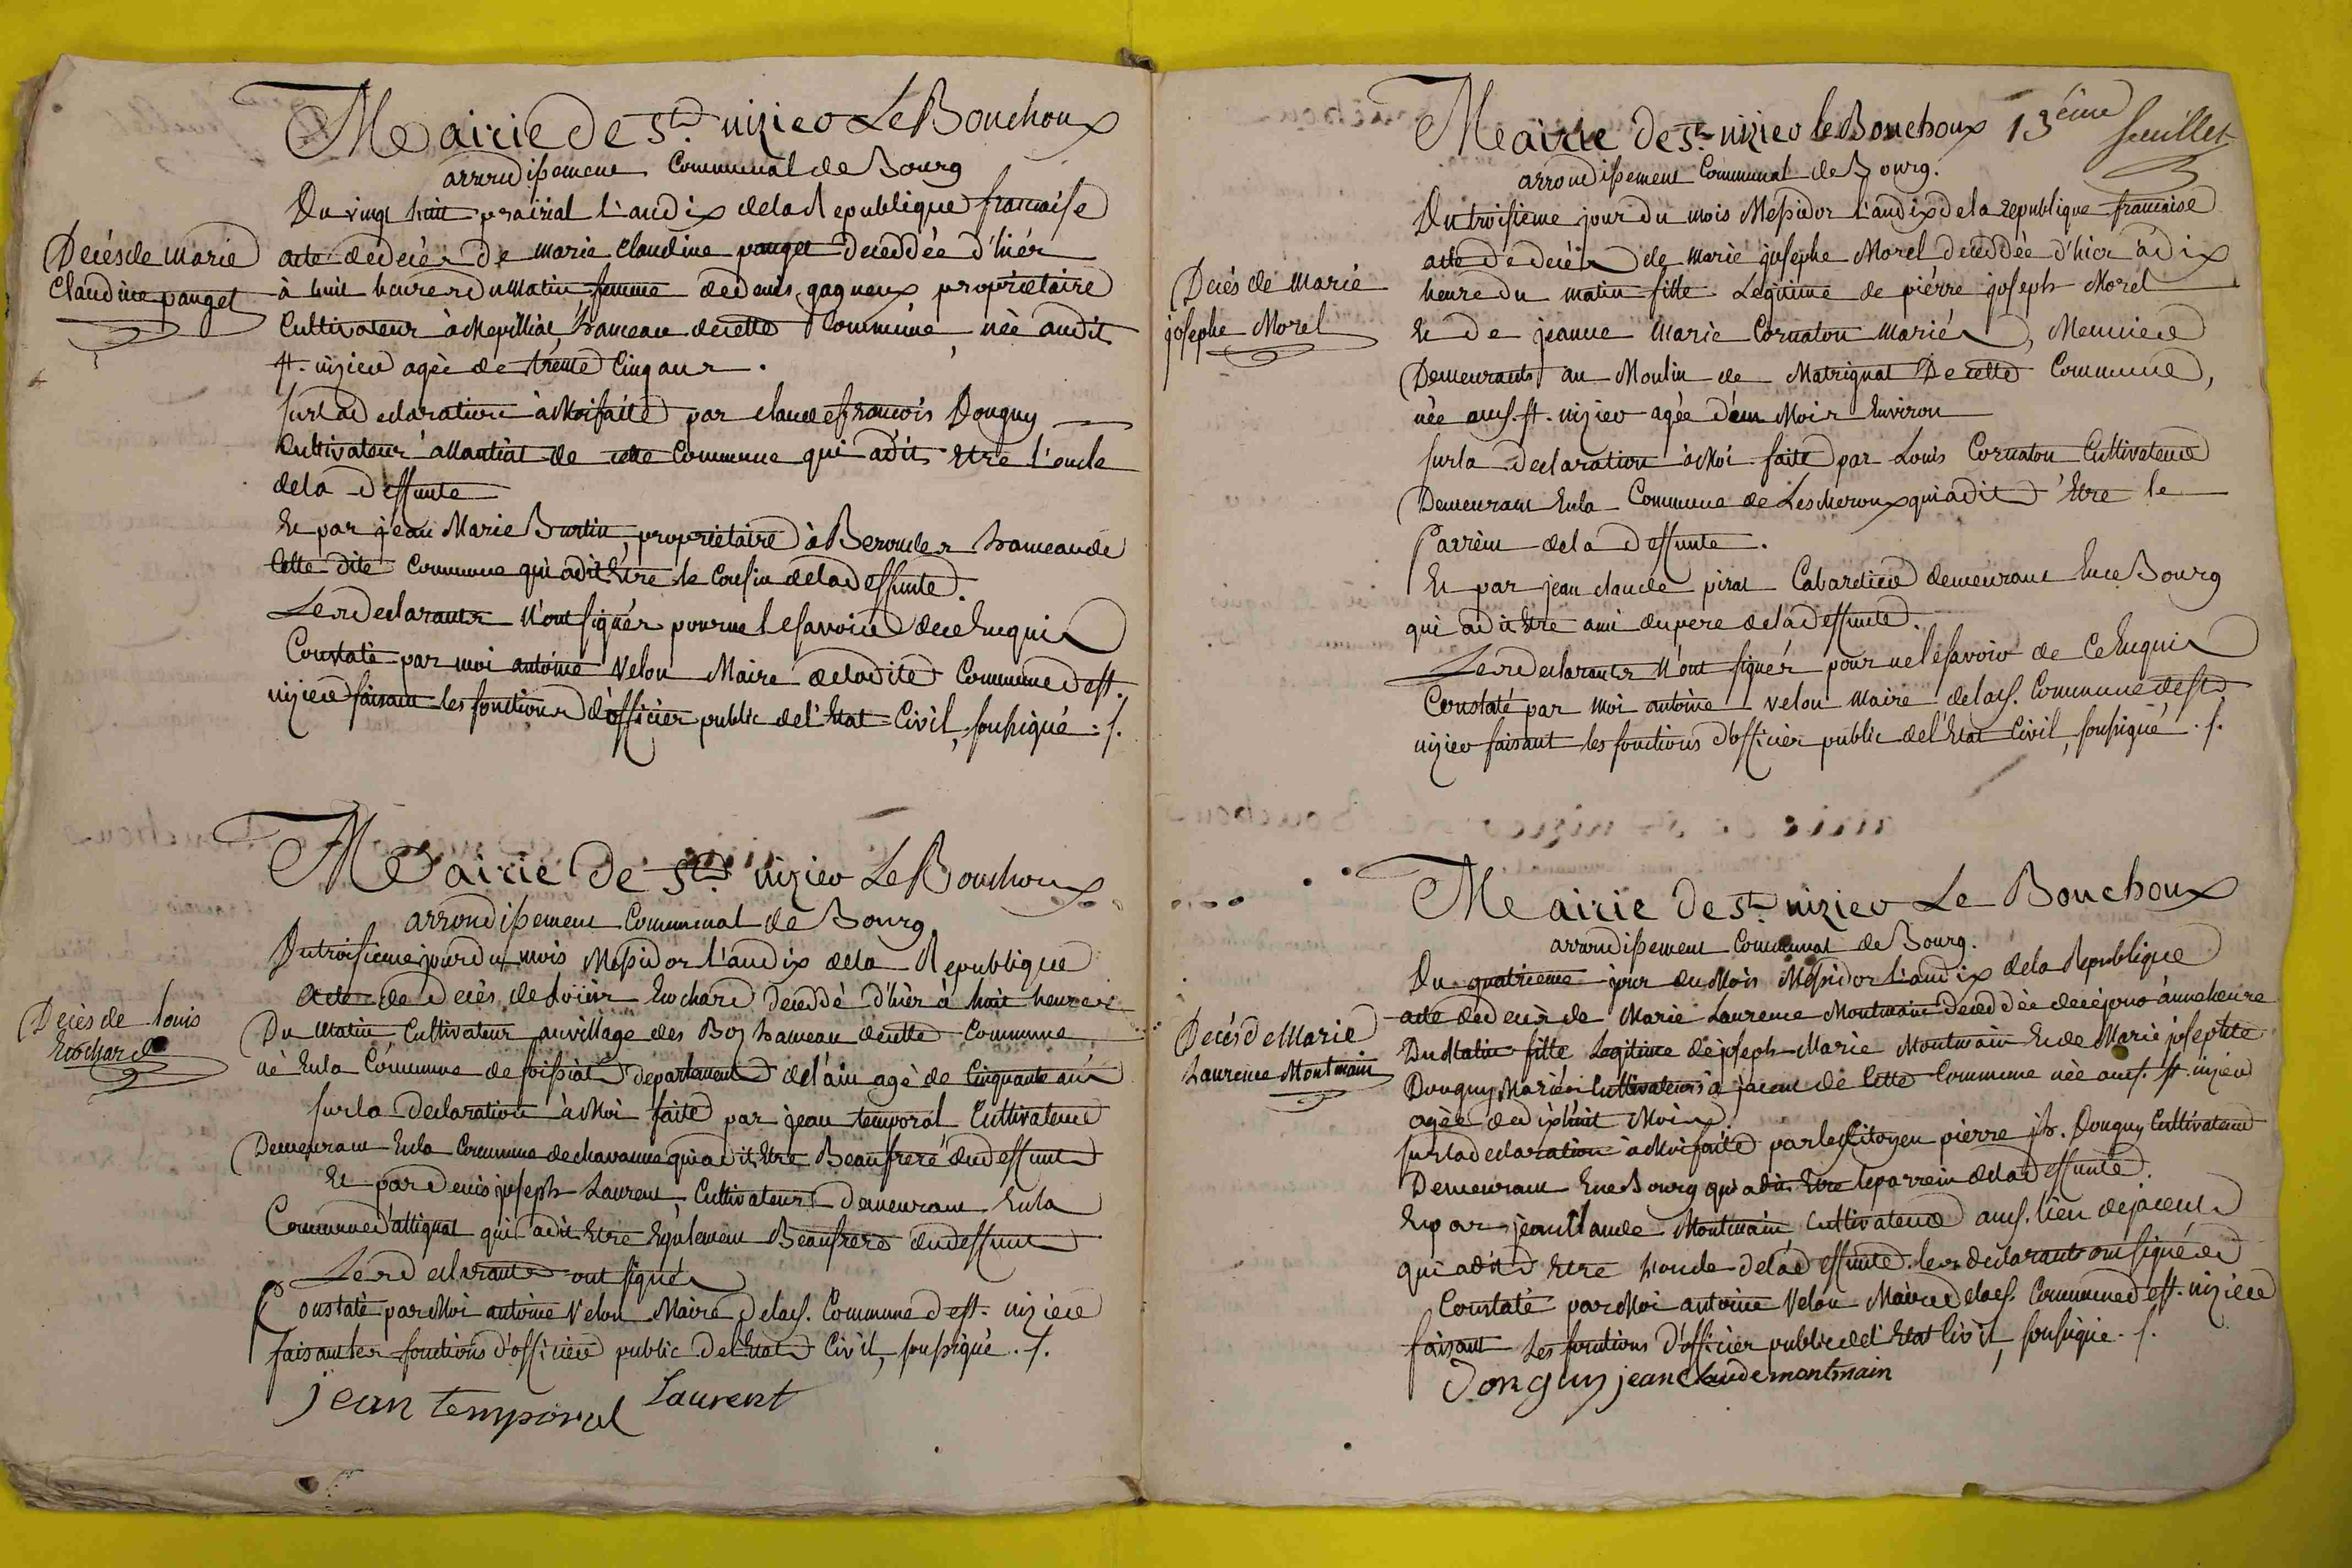 Mairie de St. nizier Le Bouchoux
arrondissement Communal de Bourg
Du vingt huit prairial l'an dix de la Republique francaise
Decés de marie
Claudine pauget
acte de decés de marie claudine pauget deceddée d'hiér
à huit heures du matin, femme de denis gagneux propriétaire
Cultivateur à Mepilliat, hameau de cette Commune, née audit
st. nizier agée de trente Cinq ans.
sur la declaration à Moi faite par claude francois Donguy
Cultivateur à de cette Commune qui a dit Etre l'oncle
de la deffunte
Et par jean Marie Burtin, propriétaire à hameau de
Cette dite Commune qui a dit Etre le Cousin de la deffunte.
Les declarants n'ont signés pour ne le savoir de ce Enquis
Constaté par moi antoine Velon Maire de ladite Commune de st.
nizier faisant les fonctions d'officier public de l'Etat Civil, soussigné ./.
Mairie de St. nizier Le Bouchoux
arrondissement Communal de Bourg
Du troisieme jour du mois Messidor l'an dix de la Republique
Decès de louis
Enochard
acte de decès de louis Enochard deceddé d'hièr à huit heures
Du Matin, Cultivateur au village des Boz hameau de cette Commune
né En la Commune de foissiat departement de l'ain agé de Cinquante ans
sur la declaration à Moi faite par jean temporal Cultivateur
Demeurant En la Commune de chavanne qui a dit Etre Beaufrere du deffunt
Et par denis joseph Laurent, Cultivateur Demeurant En la
Commune d'attignat qui a dit Etre Egalement Beaufrere du deffunt
Les declarants ont signés
Constaté par Moi antoine Velon Maire de lad. Commune de st. nizier
faisant les fonctions d'officier public de l'Etat Civil, soussigné ./.
jean temporal Laurent
Mairie de St. nizier le Bouchoux 13ème feuillet
arrondissement Communal de Bourg.
Du troisieme jour du mois Messidor l'an dix de la republique francaise
Decés de marie
josephe Morel
acte de decés de marie josephe Morel deceddée d'hier à dix
heure du matin fille Legitime de piérre joseph Morel
Et de jeanne Marie Cornaton mariés, Meunier
Demeurants au Moulin de Matrignat De cette Commune,
née aud. st. nizier agée d'un Mois Environ
sur la declaration à Moi faite par Louis Cornaton Cultivateur
Demeurant En la Commune de Lescheroux qui a dit Etre le
Parrein de la deffunte.
Et par jean claude pirat Cabardier demeurant En ce Bourg
qui a dit Etre ami du pere de la deffunte.
Les declarants n'ont signés pour ne le savoir de Ce Enquis
Constaté par moi antoine velon maire de lad. Commune de st
nizier faisant les fonctions d'officier public de l'Etat Civil, soussigné ./.
Mairie de St. nizier Le Bouchoux
arrondissement Communal de Bourg.
Du quatrieme jour du Mois Messidor l'an dix de la Republique
Decés de Marie
Laurence Montmain
acte de decés de Marie Laurence Montmain deceddée de ce jour à une heure
Du Matin fille Legitime de joseph Marie Montmain Et de Marie josephte
Donguy Mariés Cultivateurs à jacent de Cette Commune née aud. st. nizier
agée de dix huit Mois.
sur la declaration à Moi faite par le Citoyen pierre jh. Donguy Cultivateur
Demeurant En ce Bourg qui a dit Etre le parrein de la deffunte.
Et par jean Claude Montmain Cultivateur aud. lieu de jacent
qui a dit Etre l'oncle de la deffunte. les declarants ont signé
Constaté par Moi antoine Velon Maire de lad. Commune de st. nizier
faisant Les fonctions d'officier public de l'Etat Civil, soussigné ./.
Donguy jean Claude montmain